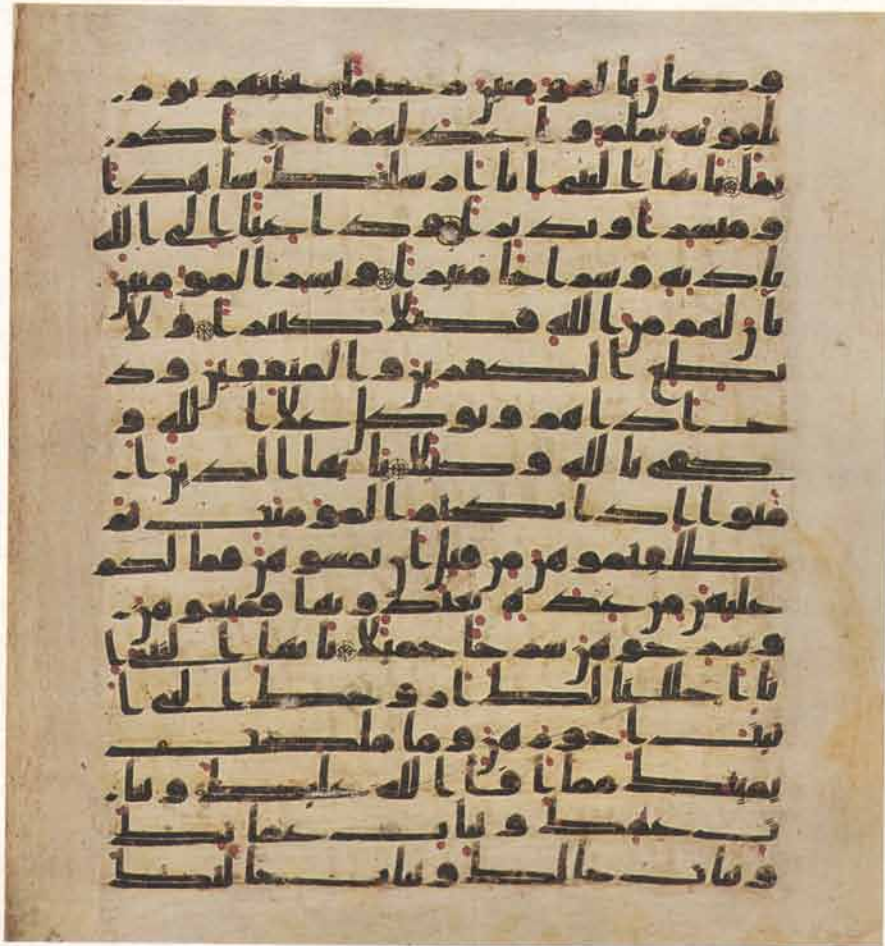 وكان بالمومنين رحيما تحيتهم يوم
يلقونه سلم واعد لهم اجرا كر
يما يايها النبي انا ارسلنك شهدا
ومبشرا ونذيرا وداعيا الى الله
باذنه وسراجا منيرا وبشر المومنين
بان لهم من الله فضلا كبيرا ولا
تطع الكفرين والمنفقين ود
ع اذاهم وتوكل على الله و
كفى بالله وكيلا يايها الذين ا
منوا اذا نكحتم المومنت ثم
طلقتموهن من قبل ان تمسوهن فما لكم
عليهن من عدة تعتدونها فمتعوهن
وسرحوهن سراحا جميلا يايها النبي ا
نا احللنا لك ازوجك التي ا
تيت اجورهن وما ملكت
يمينك مما افا الله عليك وبنا
ت عمك وبنات عماتك
وبنات خالك وبنات خالتك